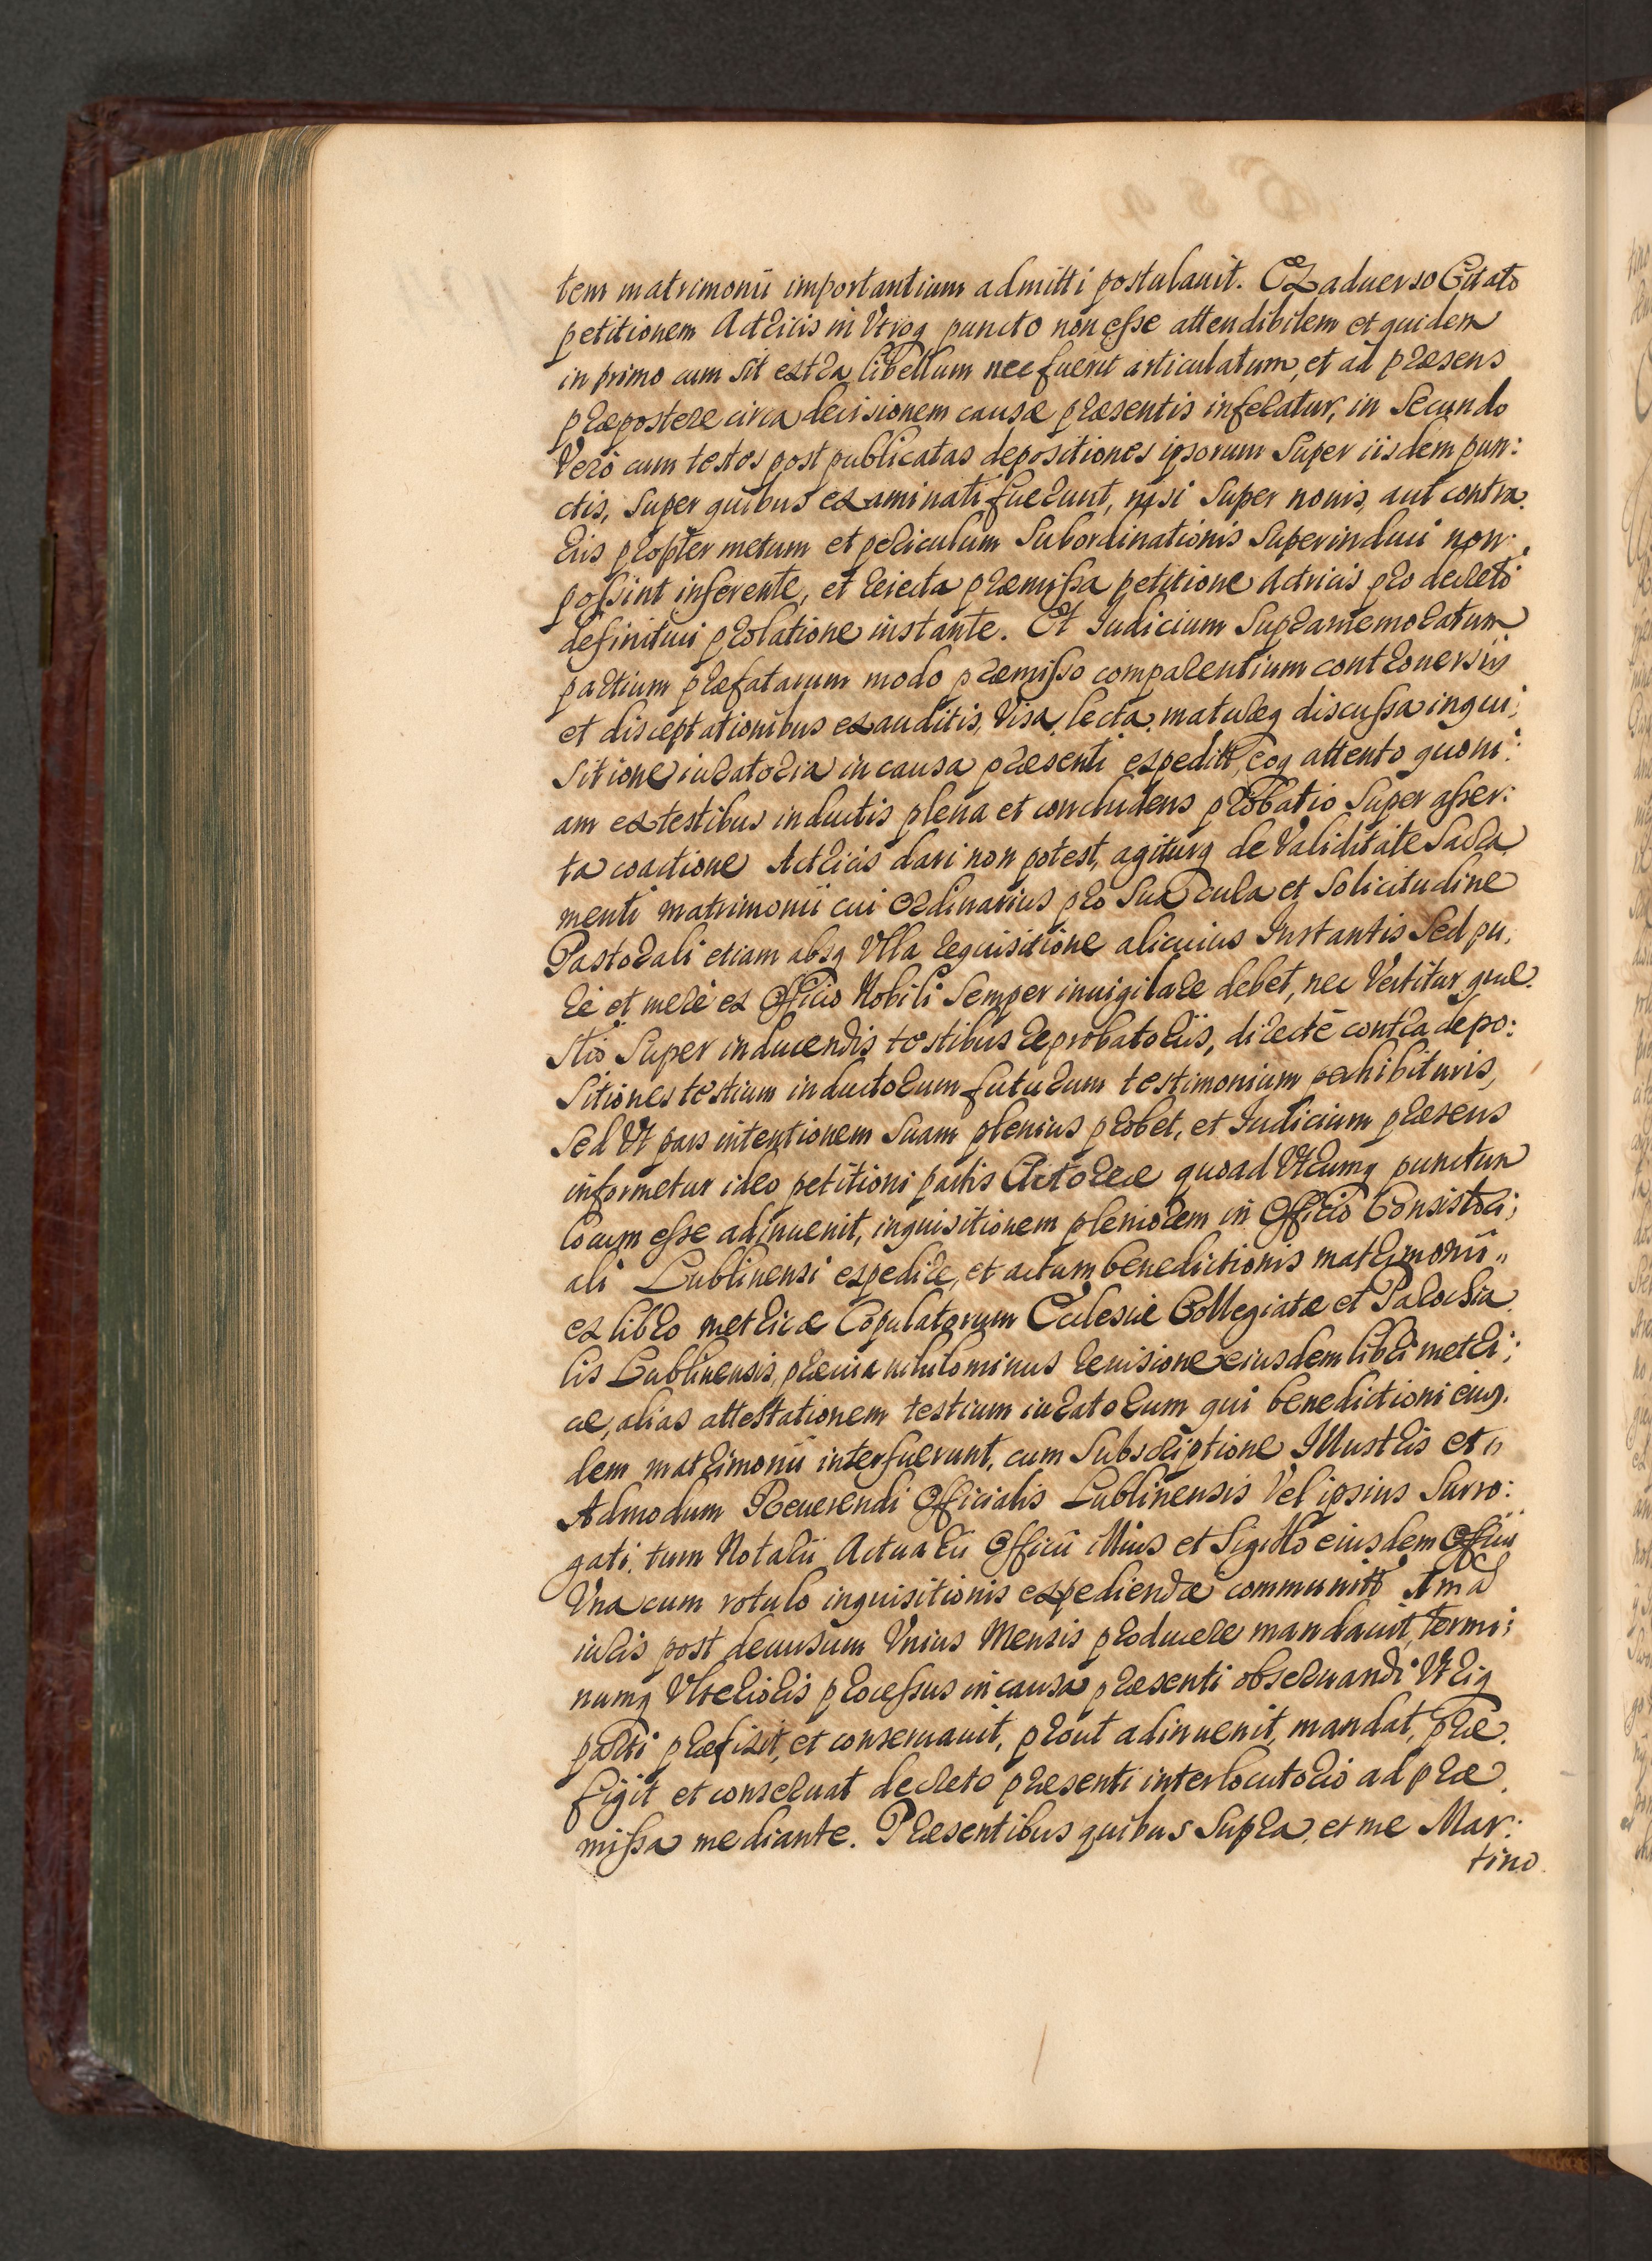 tem matrimonii importantium admitti postulauit. Ex aduerso Citato
petitionem Actricis in Vtroq puncto non esse attendibilem et quidem
in primo cum sit extra libellum nec fuerit articulatum, et ad præsens
præpostere circa decisionem causæ præsentis inferatur, in Secundo
Verò cum testes post publicatas depositiones ipsorum Super iisdem pun:
ctis, Super quibus examinati fuerunt, nisi Super nouis, aut contra.
riis propter metum et periculum Subordinationis Superinduci non:
possint inferente, et reiecta præmissa petitione Actricis pro decreti
definitiui prolatione instante. Et Iudicium Supramemoratum
partium præfatarum modo præmisso comparentium controuersijs
et disceptationibus exauditis, Visa, lecta, matureq discussa inqui;
sitione iuratoria in causa præsenti expedita, eoq attento quoni:
am ex testibus inductis plena et concludens probatio Super asser:
ta coactione Actricis dari non potest, agiturq de Validitate Sacra
menti matrimonii cui Ordinarius pro Sua cura et Solicitudine
Pastorali etiam absq Vlla requisitione alicuius Instantis Sed pu,
rè et merè ex Officio Nobili Semper inuigilare debet, nec Vertitur quæ.
stio Super inducendis testibus reprobatoriis, directè contra depo:
Sitiones testium inductorum futurum testimonium perhibituris,
Sed Vt pars intentionem Suam plenius probet, et Iudicium præsens
informetur ideo petitioni partis Actoreæ quoad Vtrumq punctum
locum esse adinuenit, inquisitionem pleniorem in Officio Consistori;
ali Lublinensi expedire, et actum benedictionis matrimonii"
ex libro metricæ Copulatorum Ecclesiæ Collegiatæ et Parochia
lis Lublinensis, præuia nihilominus reuisione eiusdem libri metri;
cæ, alias attestationem testium iuratorum qui benedictioni eius.
dem matrimonii interfuerunt, cum Subscriptione Illustris et "
Admodum Reuerendi Officialis Lublinensis Vel ipsius Surro:
gati, tum Notarii Actuarii Officii illius et Sigillo eiusdem Officii
Vna cum rotulo inquisitionis expediendæ communiti
iuris post decursum Vnius Mensis producere mandauit, termi:
numq Vlterioris processus in causa præsenti obseruandi Vtriq
parti præfixit, et conseruauit, prout adinuenit, mandat, præ.
figit et conseruat decreto præsenti interlocutorio ad præ
missa mediante. Præsentibus quibus Supra, et me Mar:
tino.